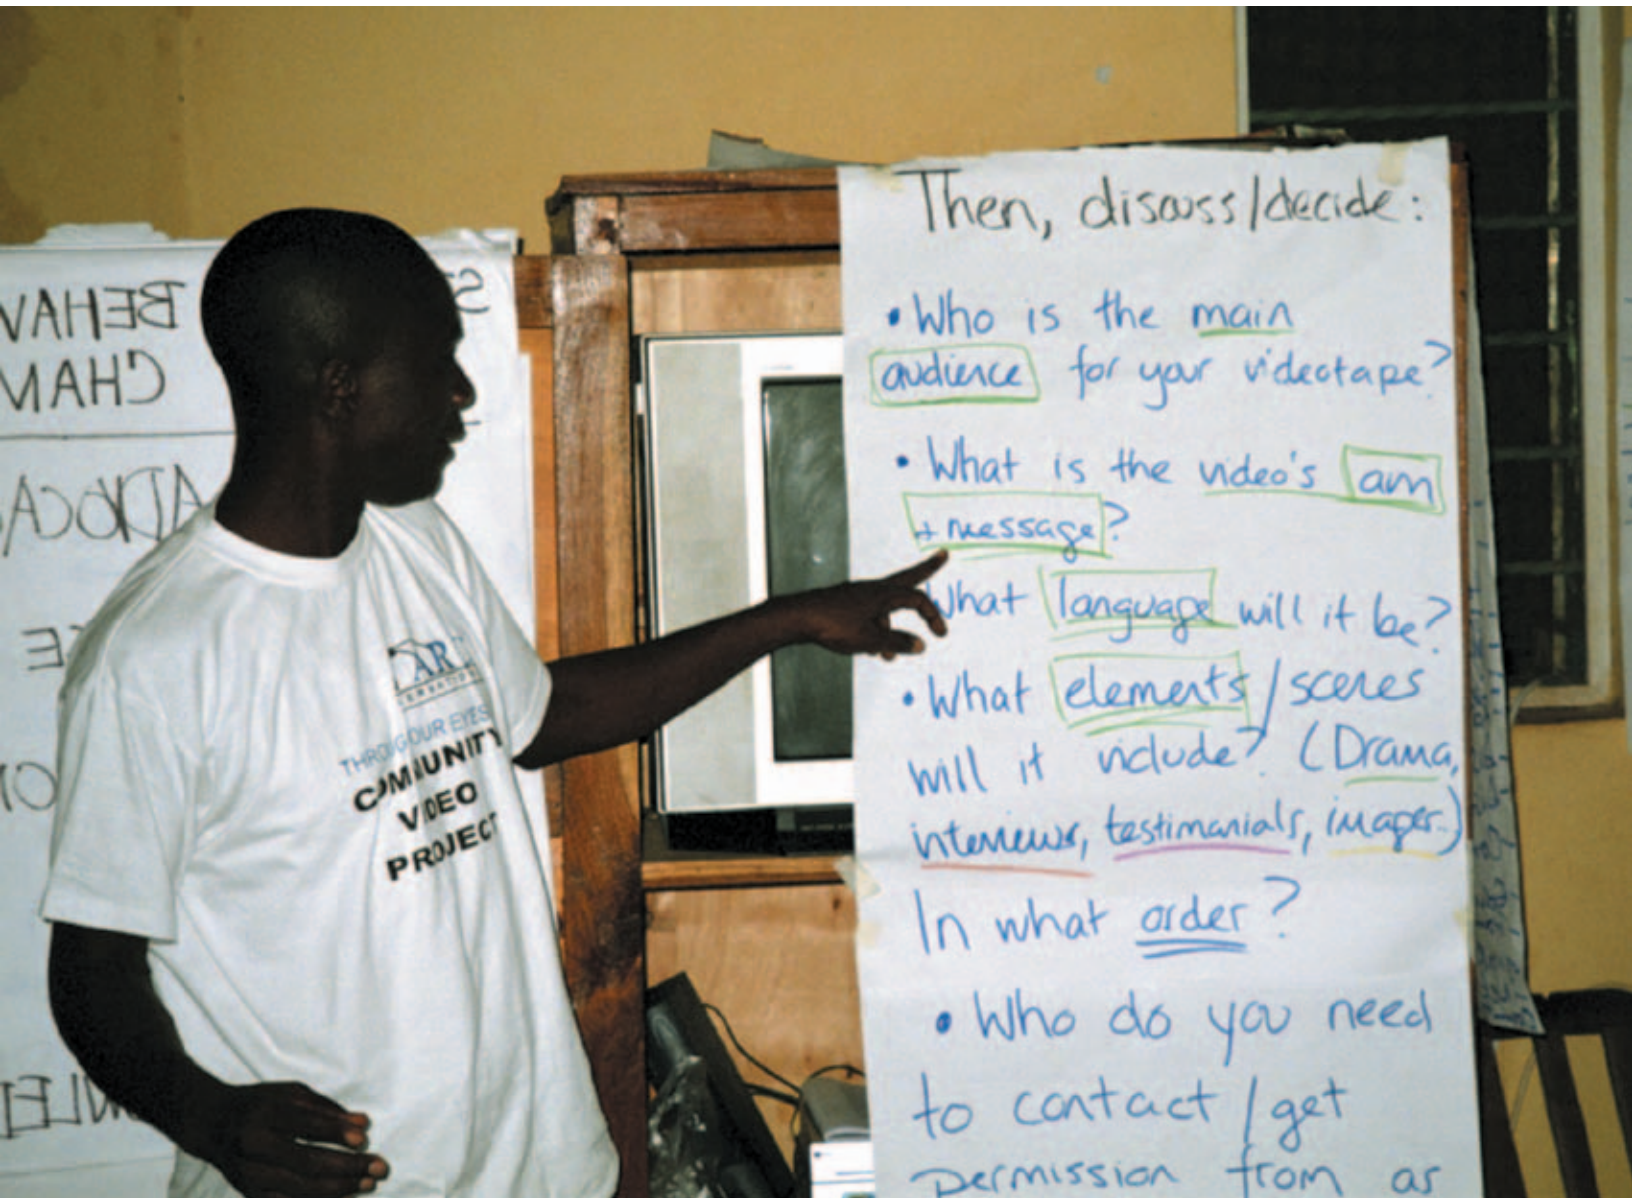 BEHAV
CHAN
ADVOCA
THROUGH OUR EYES
COMMUNITY
VIDEO
PROJECT
Then, discuss/decide:
• Who is the main
audience for your videotape?
• What is the video's aim
+ message?
What language will it be?
• What elements/scenes
will it include? (Drama,
interviews, testimonials, images..)
In what order?
• Who do you need
to contact/get
permission from as